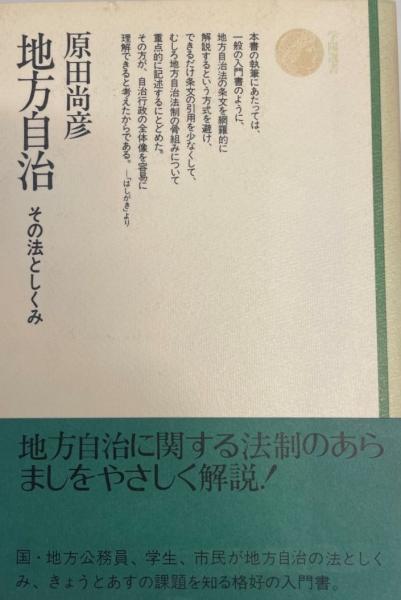 原田尚彦
地方自治
その法としくみ
本書の執筆にあたっては、
一般の入門書のように、
地方自治法の条文を網羅的に
解説するという方式を避け、
できるだけ条文の引用を少なくして、
むしろ地方自治法制の骨組みについて
重点的に記述するにとどめた。
その方が、自治行政の全体像を容易に
理解できると考えたからである。―「はしがき」より
地方自治に関する法制のあら
ましをやさしく解説!
国・地方公務員、学生、市民が地方自治の法としく
み、きょうとあすの課題を知る格好の入門書。